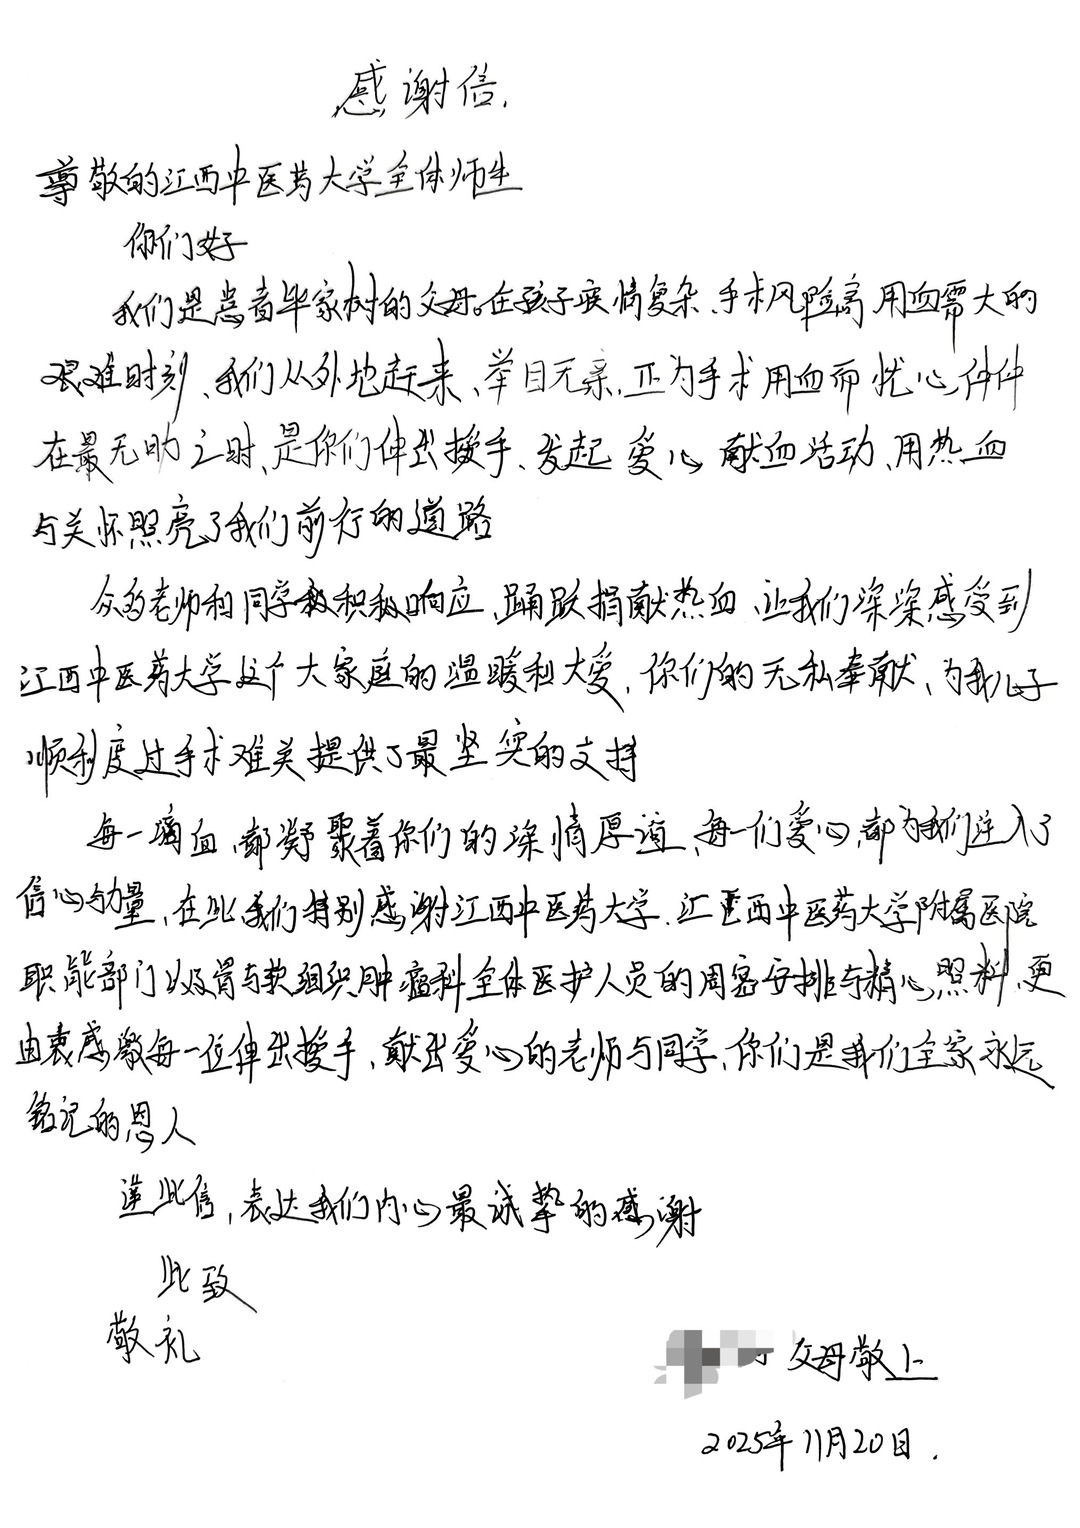 感谢信.
尊敬的江西中医药大学全体师生
你们好
我们是患者毕家树的父母。在孩子疾情复杂、手术风险高用血需大的
艰难时刻、我们从外地赶来、举目无亲、正为手术用血而忧心忡忡
在最无助之时、是你们伸出援手、发起爱心献血活动、用热血
与关怀照亮了我们前行的道路
众多老师和同学积极响应、踊跃捐献热血、让我们深深感受到
江西中医药大学这个大家庭的温暖和大爱,你们的无私奉献、为我儿子
顺利度过手术难关提供了最坚实的支持
每一滴血、都凝聚着你们的深情厚谊、每一们爱心、都为我们注入了
信心与力量、在此我们特别感谢江西中医药大学.江西中医药大学附属医院
职能部门以及骨与软组织肿瘤科全体医护人员的周密安排与精心照料、更
由衷感激每一位伸出援手、献出爱心的老师与同学、你们是我们全家永远
铭记的恩人
谨此信,表达我们内心最诚挚的感谢
此致
敬礼
父母敬上
2025年11月20日.